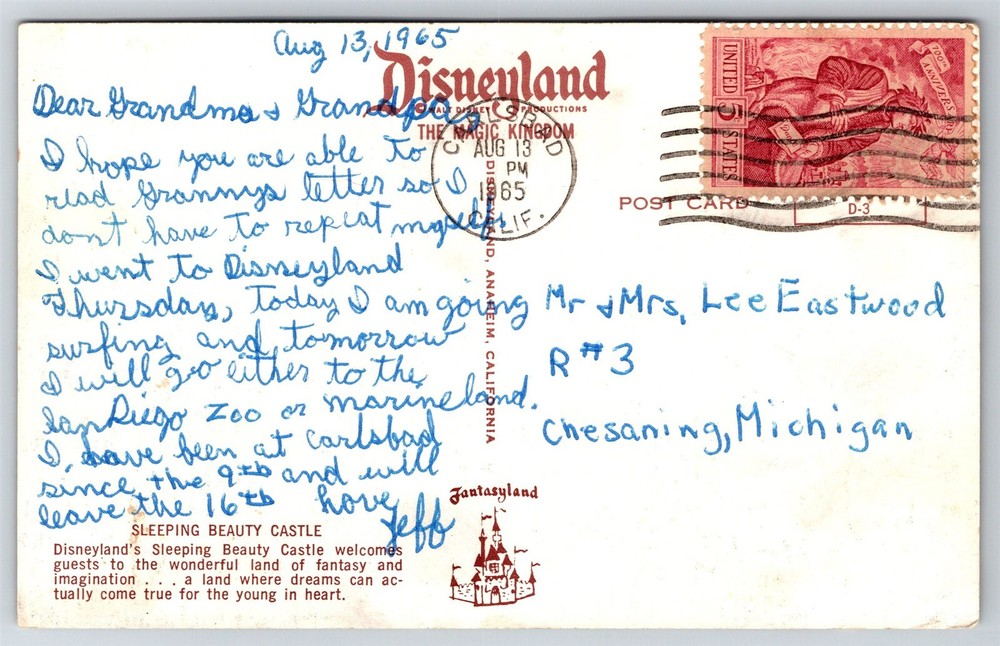 Aug 13, 1965
Disneyland
© WALT DISNEY PRODUCTIONS
THE MAGIC KINGDOM
Dear Grandma & Grandpa,
I hope you are able to
read Grannys letter so I
don't have to repeat myself.
I went to Disneyland
Thursday, today I am going
surfing and tomorrow
I will go either to the
San Diego Zoo or marineland.
I have been at Carlsbad
since the 9th and will
leave the 16th Love
Jeff
SLEEPING BEAUTY CASTLE
Disneyland's Sleeping Beauty Castle welcomes
guests to the wonderful land of fantasy and
imagination . . . a land where dreams can ac-
tually come true for the young in heart.
DISNEYLAND, ANAHEIM, CALIFORNIA
Fantasyland
CARLSBAD
AUG 13
PM
1965
CALIF.
UNITED STATES
5
700th ANNIVERS
POST CARD
D-3
Mr & Mrs, Lee Eastwood
R #3
Chesaning, Michigan